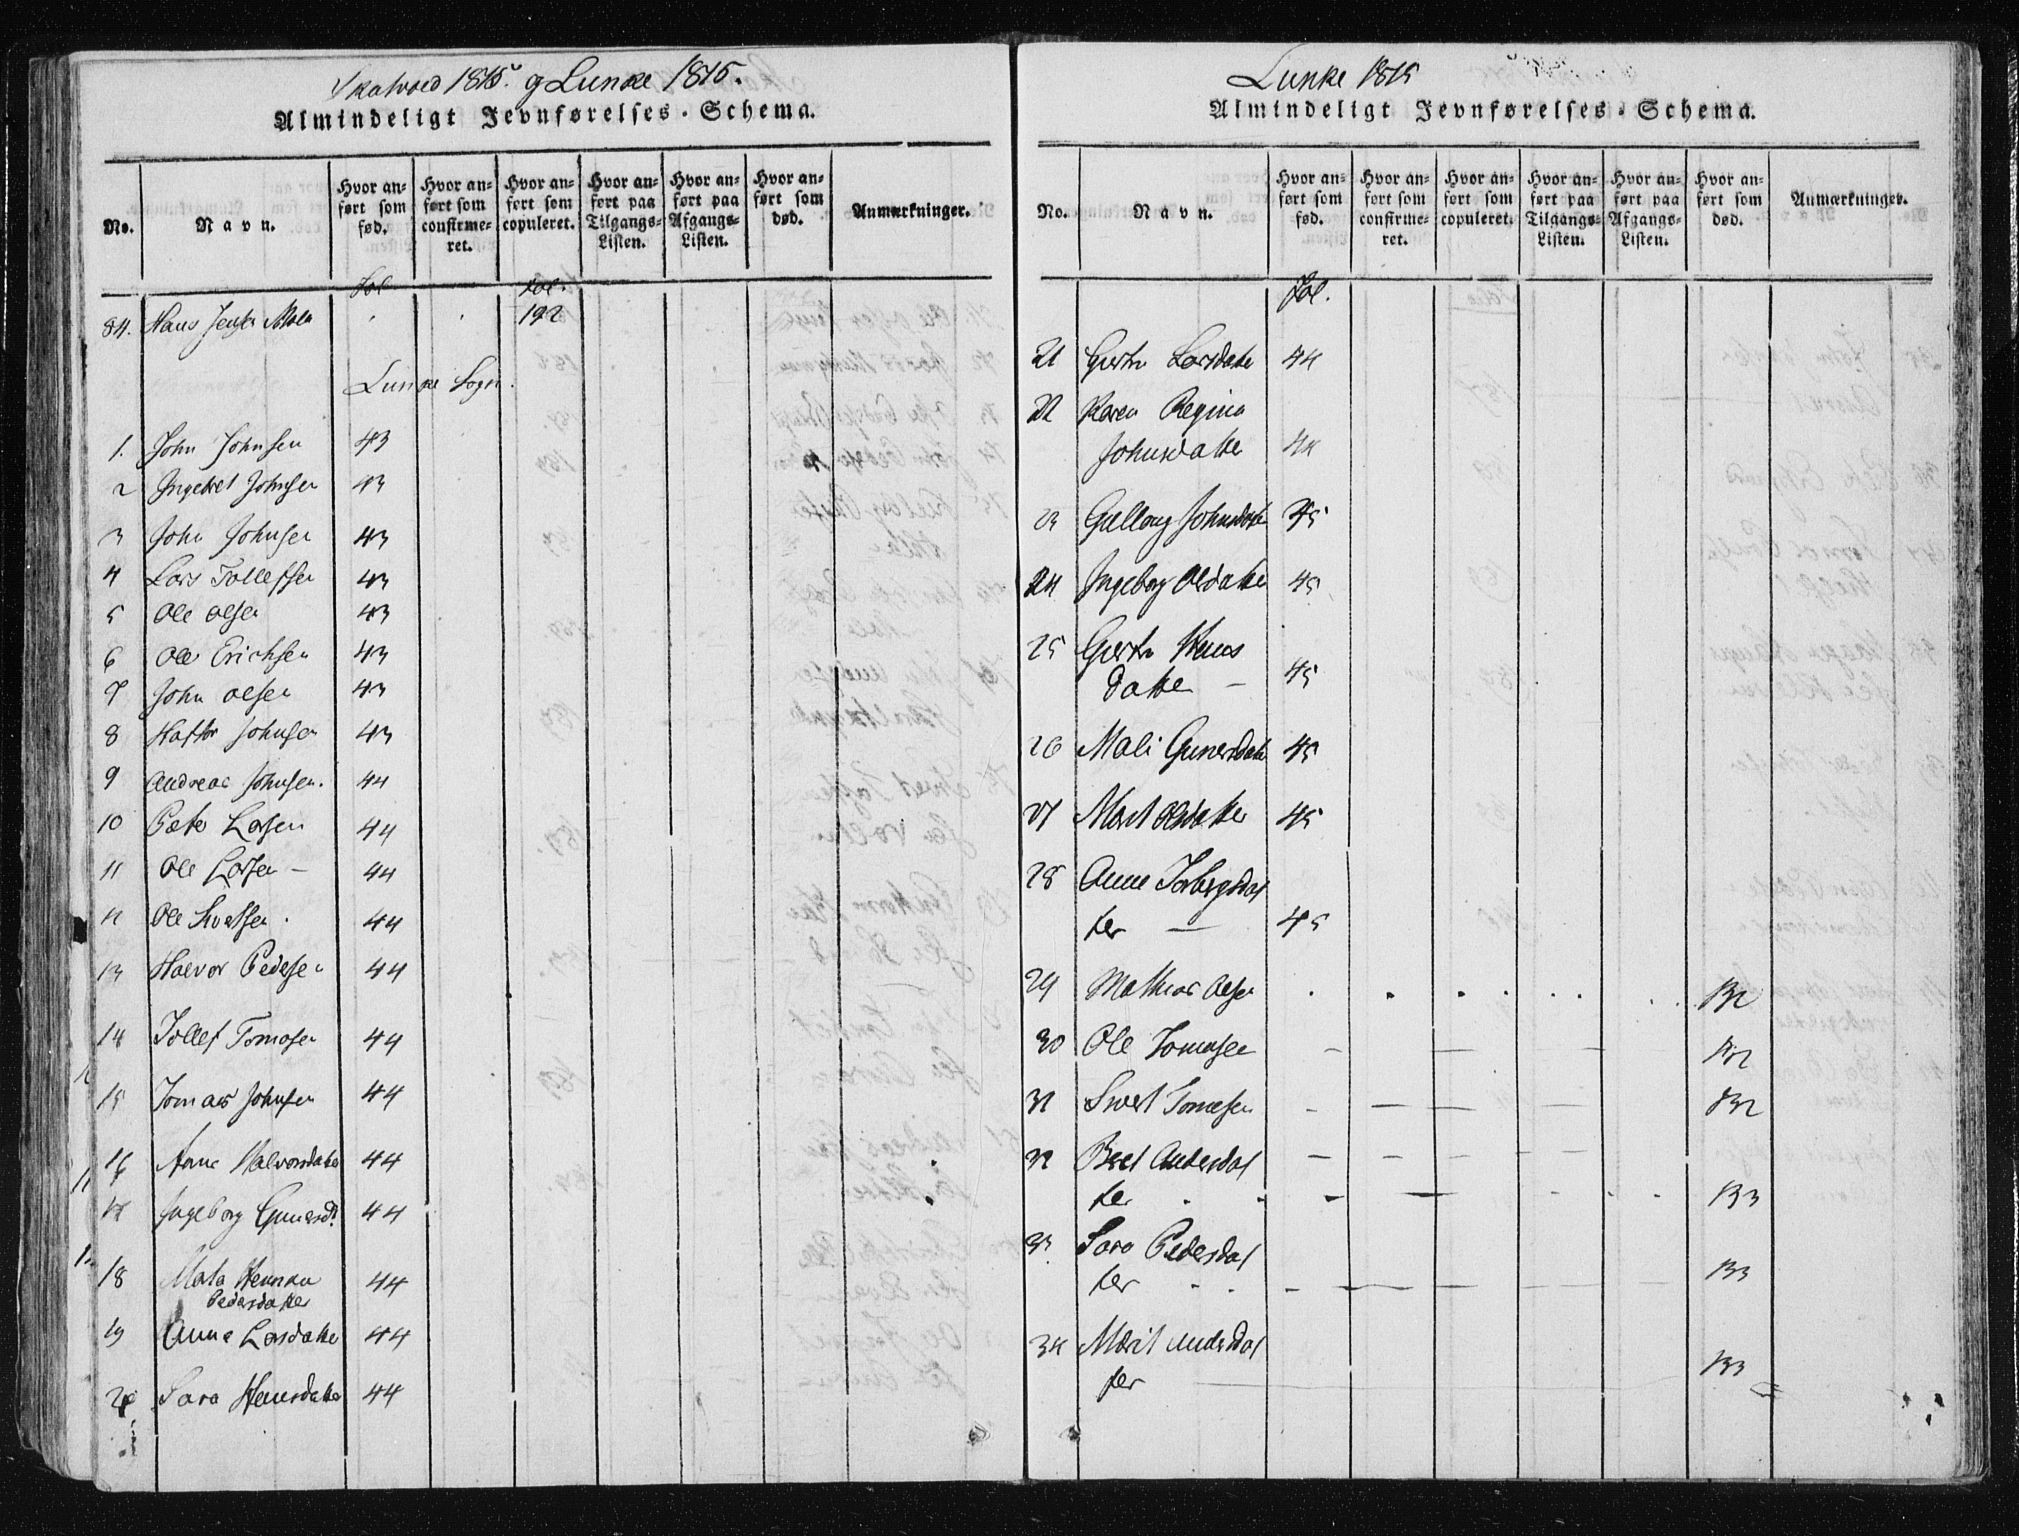 Skatvold 1815. og Lunke 1815.
Almindeligt Jevnførelses-Schema.
No.
Navn.
Hvor anført som fød.
Hvor anført som confirmeret.
Hvor anført som copuleret.
Hvor anført paa Tilgangs-Listen.
Hvor anført paa Afgangs-Listen.
Hvor anført som død.
Anmærkninger.
Fol Fol.
84. Hans 192
Lunke Sogn.
1. John Johnsen 43
2 Ingebret Johnsen 43
3 John Johnsen 43
4 Lars Tollefsen 43
5 Ole Olsen 43
6 Ole Erichsen 43
7 John Olsen 43
8 Haftor Johnsen 43
9 Andreas Johnsen. 44
10 Peter Larsen 44
11 Ole Larsen - 44
12 Ole Sivertsen . 44
13 Halvor Pedersen 44
14 Tollef Tomasen 44
15 Tomas Johnsen 44
16 Anne Halvorsdatter 44
17 Ingeborg Gunersdt. 44
18 Marta Hennrica 44
Pedersdatter
19 Anne Larsdatter 44
20 Sara Hansdatter 44
Lunke 1815
Almindeligt Jevnførelses-Schema.
No.
Navn.
Hvor anført som fød.
Hvor anført som confirmeret.
Hvor anført som copuleret.
Hvor anført paa Tilgangs-Listen.
Hvor anført paa Afgangs-Listen.
Hvor anført som død.
Anmærkninger.
Fol.
21 Giertru Larsdatter 44
22 Karen Regina
Johnsdatter 44
23 Gullaug Johnsdatter 45
24 Ingeborg Olsdatter 45
25 Giertru Hans
datter - 45
26 Mali Gunersdatter 45
27 Marit Olsdatter 45
28 Anne Torbergsdat
ter — 45
29 Mathias Olsen 132
30 Ole Tomasen 132
31 Sivert Tomasen 132
32 Beret Andersdat
ter 133
33 Sara Pedersdat
ter 133
34 Marit Andersdat
ter 133